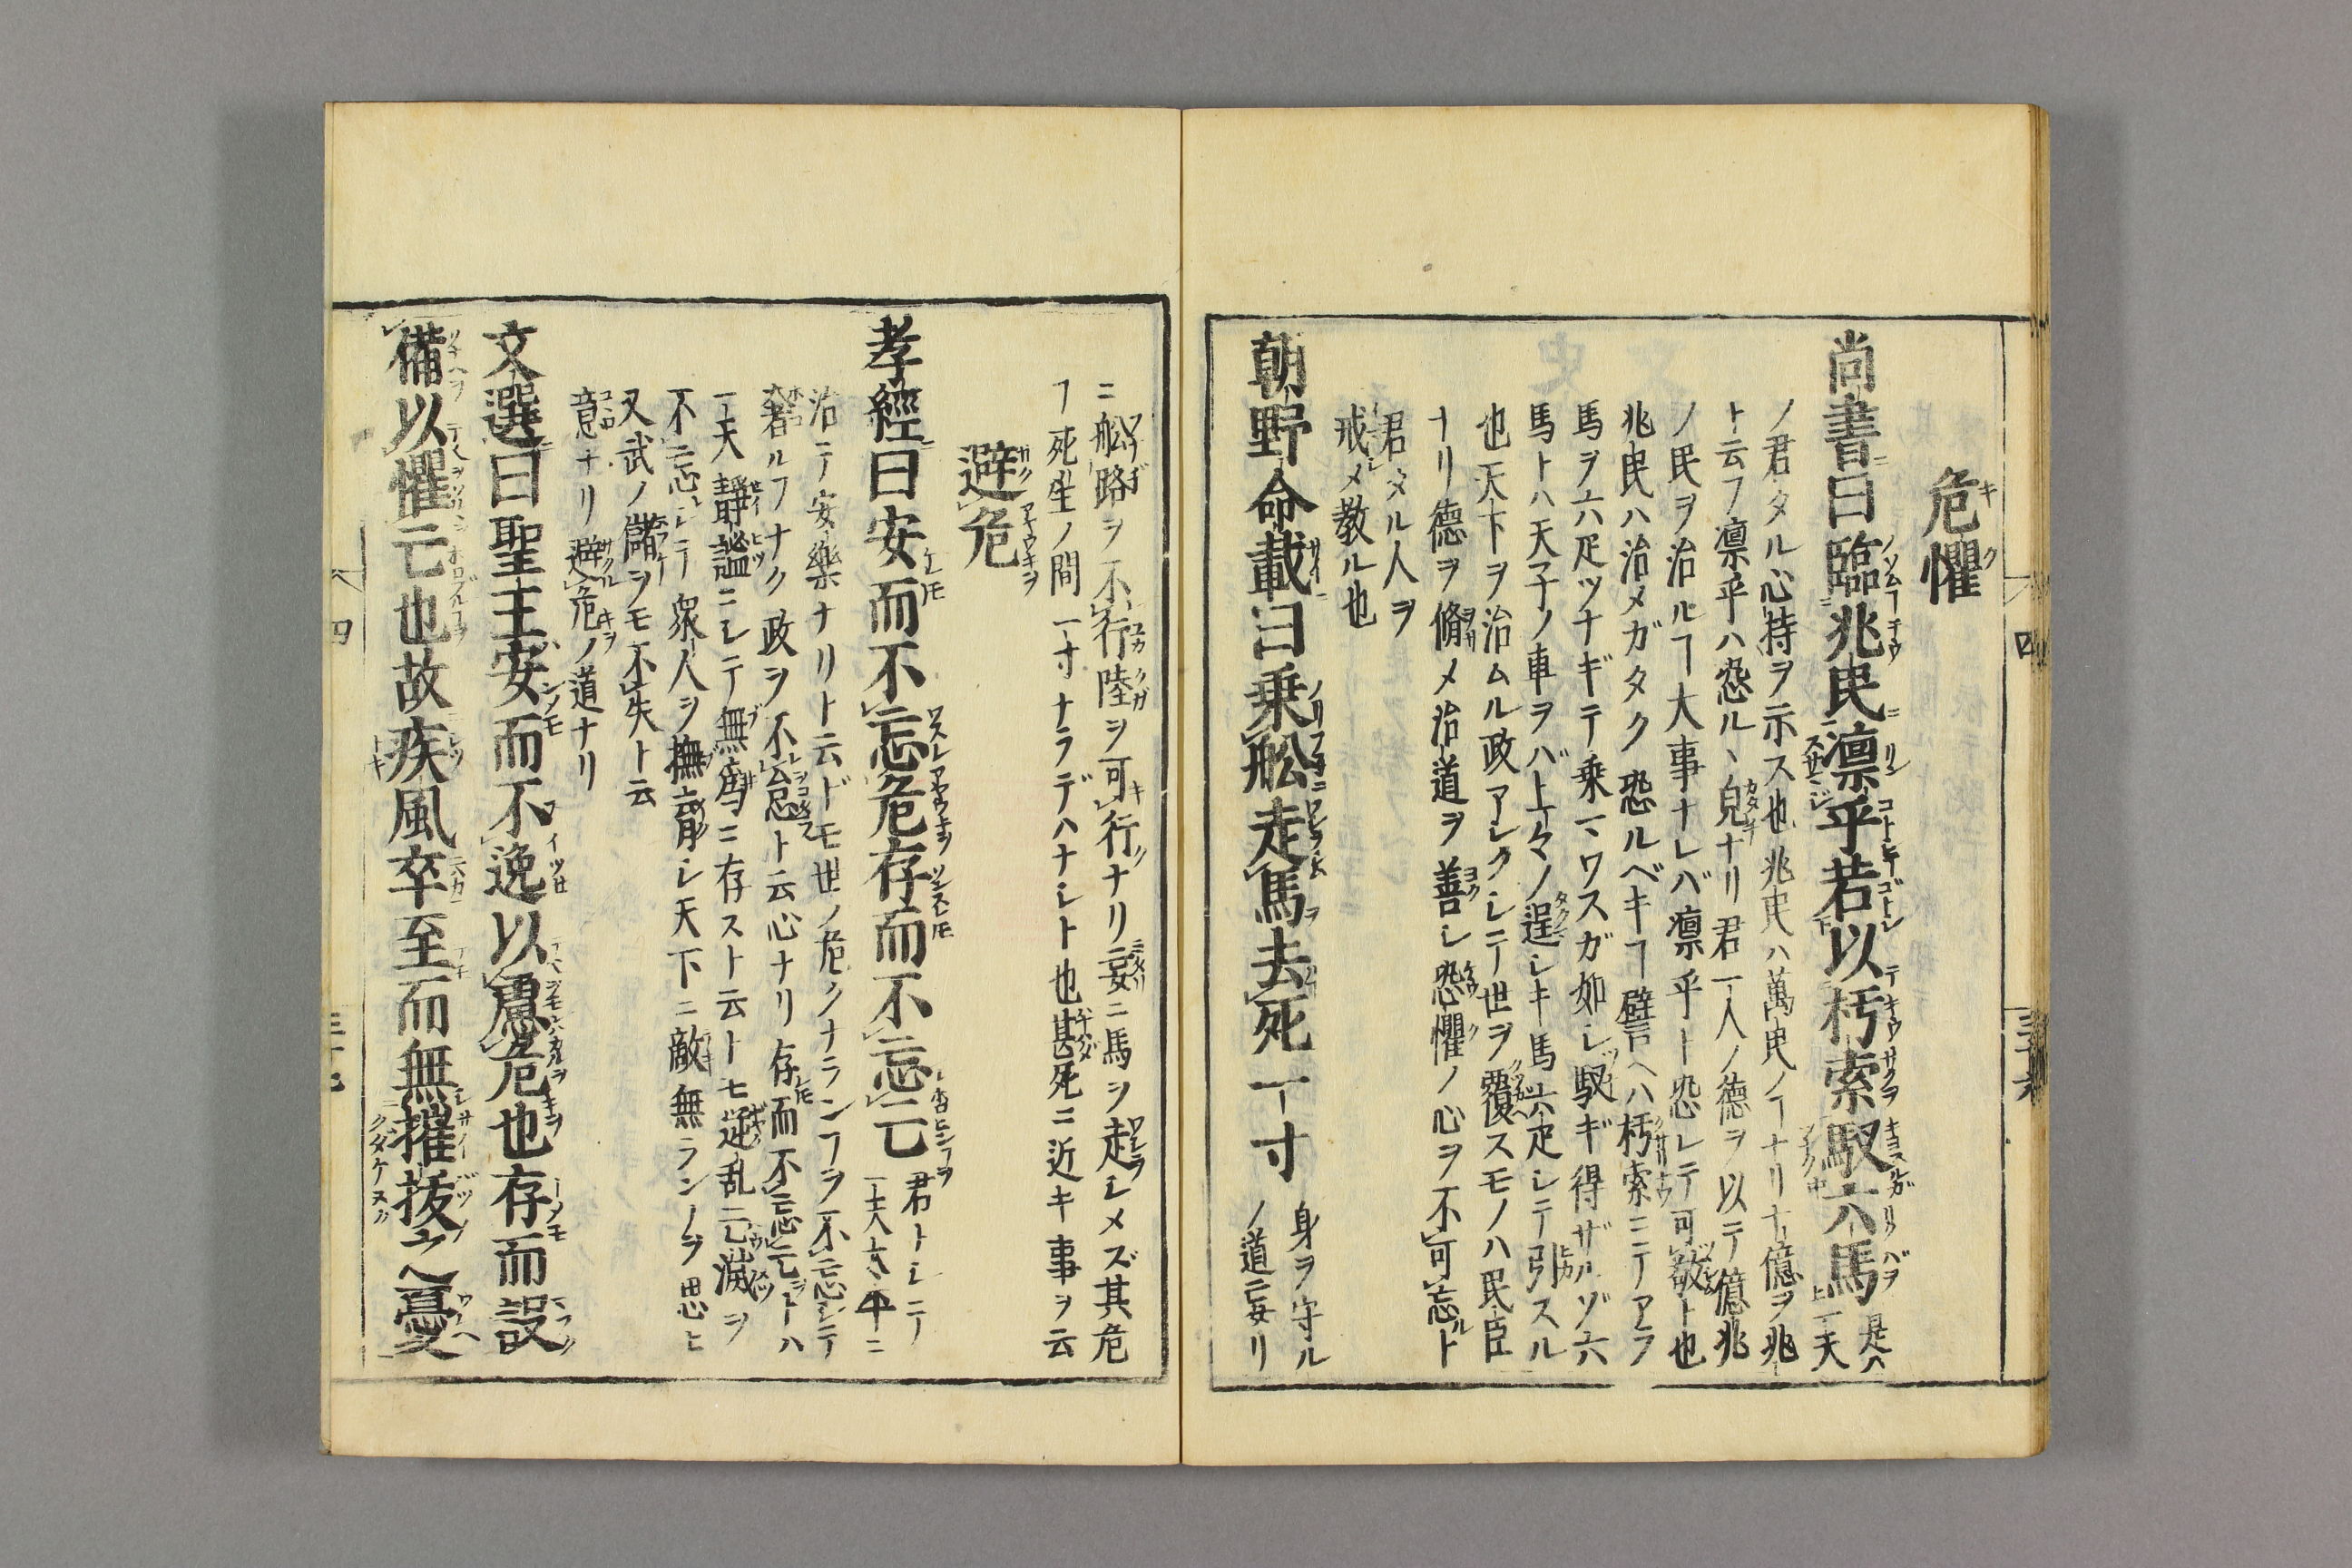 危懼
尚書曰臨兆民凛乎若以朽索馭六馬 是ハ一天
ノ君タル心持ヲ示ス也兆民ハ萬民ノ𪜈ナリ十億ヲ兆
ト云フ凛乎ハ恐ルヽ皃ナリ君一人ノ德ヲ以テ億兆
ノ民ヲ治ルヿ大事ナレバ凛乎ト恐レテ可敬ト也
兆民ハ治メガタク恐ルベキヿ譬ヘハ朽索ニテアラ
馬ヲ六疋ツナギテ乗マワスガ如シ馭ギ得ザルゾ六
馬トハ天子ノ車ヲバ上々ノ逞シキ馬六疋シテ引スル
也天下ヲ治ムル政アシクシテ世ヲ覆スモノハ民臣
ナリ德ヲ脩メ治道ヲ善シ恐懼ノ心ヲ不可忘ト
君タル人ヲ
戒メ教ル也
朝野僉載曰乗舩走馬去死一寸 身ヲ守ルノ道妄リ
ニ舩路ヲ不行陸ヲ可行ナリ妄ニ馬ヲ走シメズ其危
ヿ死生ノ間一寸ナラデハナシト也甚死ニ近キ事ヲ云
避危
孝經曰安而不忘危存而不忘亡 君トシテ天下太平ニ
治テ安樂ナリト云ドモ世ノ危クナランヿヲ不忘シテ
奢ルヿナク政ヲ不怠ト云心ナリ存而不忘亡トハ
一天靜謐ニシテ無爲ニ存スト云トモ逆乱亡滅ヲ
不忘シテ衆人ヲ撫育シ天下ニ敵無ランヿヲ思ヒ
又武ノ備ヲモ不失ト云
意ナリ避危ノ道ナリ
文選曰聖主安而不逸以慮危也存而設
備以懼亡也故疾風卒至而無摧拔之憂
四
四